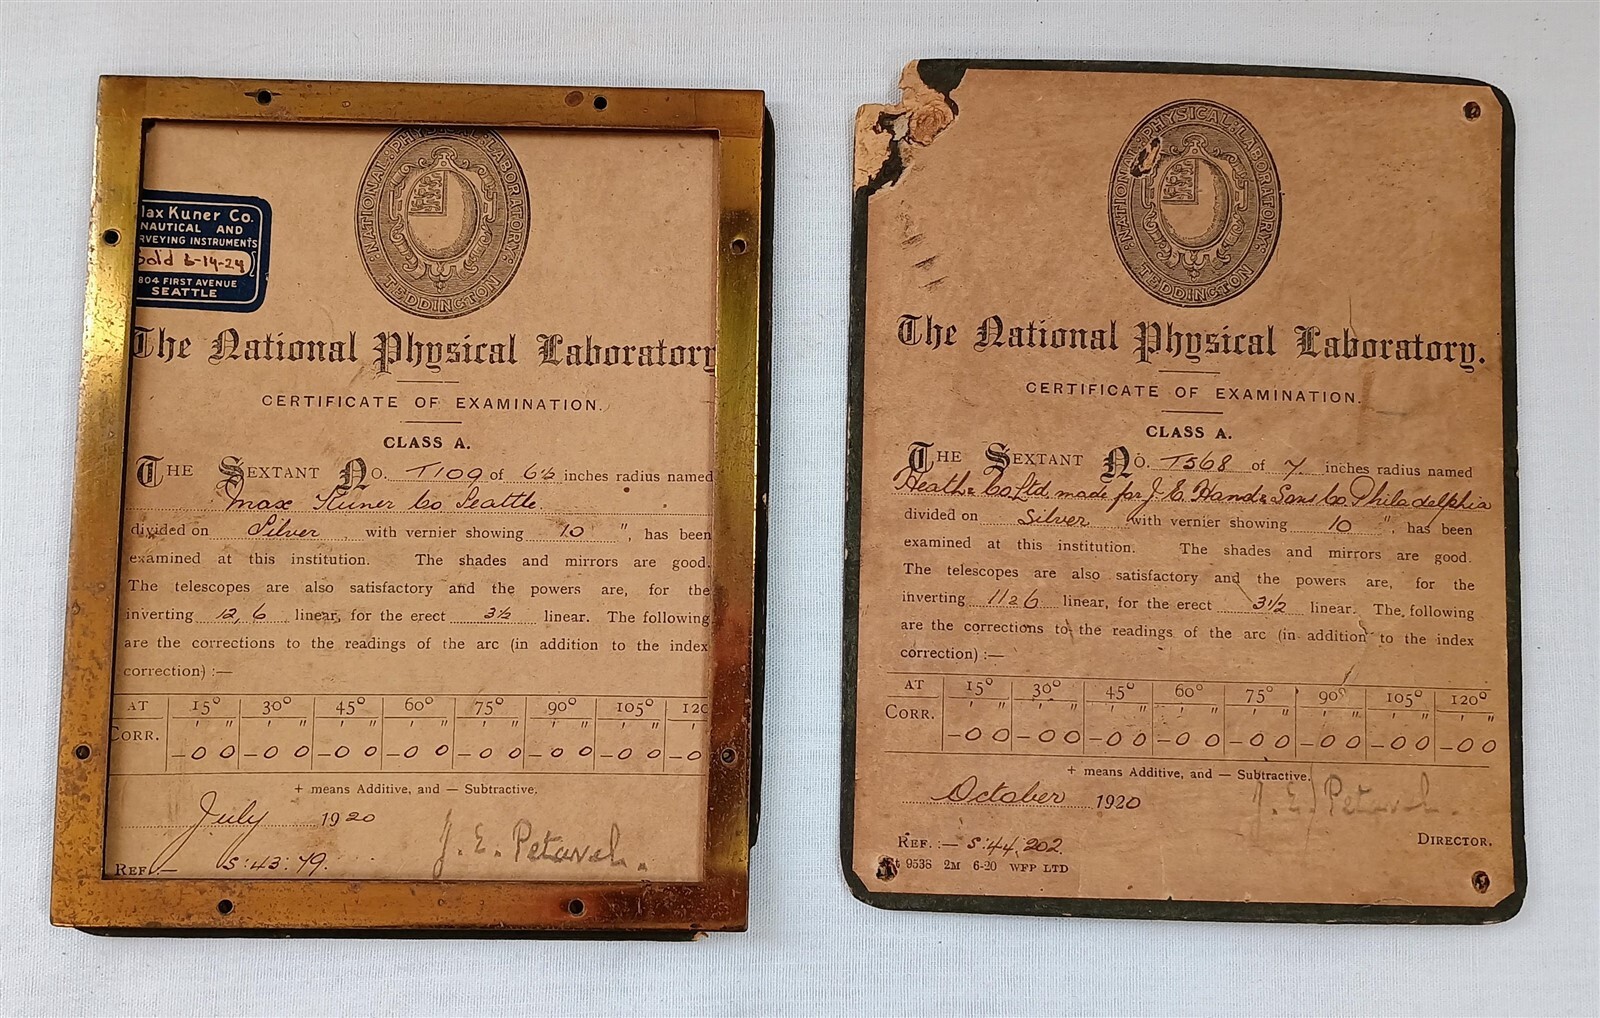 NATIONAL PHYSICAL LABORATORY
TEDDINGTON
Max Kuner Co.
NAUTICAL AND
RVEYING INSTRUMENTS
Sold
804 FIRST AVENUE
SEATTLE
The National Physical Laboratory
CERTIFICATE OF EXAMINATION.
CLASS A.
THE SEXTANT NO. T109 of 6½ inches radius named
Max Kuner Co Seattle.
divided on Silver, with vernier showing 10 ", has been
examined at this institution. The shades and mirrors are good.
The telescopes are also satisfactory and the powers are, for the
inverting 12, 6 linear, for the erect 3½ linear. The following
are the corrections to the readings of the arc (in addition to the index
correction) :—
AT 15° 30° 45° 60° 75° 90° 105° 120
' " ' " ' " ' " ' " ' " ' " '
CORR. -0 0 -0 0 -0 0 -0 0 -0 0 -0 0 -0 0 -0
+ means Additive, and — Subtractive.
July 1920
J. E. Petavel.
REF. — S:43:79.
NATIONAL PHYSICAL LABORATORY
TEDDINGTON
The National Physical Laboratory.
CERTIFICATE OF EXAMINATION.
CLASS A.
THE SEXTANT NO. T568 of 7 inches radius named
Heath & Co Ltd made for J. E. Hand & Sons Co Philadelphia
divided on Silver with vernier showing 10 ", has been
examined at this institution. The shades and mirrors are good.
The telescopes are also satisfactory and the powers are, for the
inverting 11 & 6 linear, for the erect 3½ linear. The following
are the corrections to the readings of the arc (in addition to the index
correction) :—
AT 15° 30° 45° 60° 75° 90° 105° 120°
' " ' " ' " ' " ' " ' " ' " ' "
CORR. -0 0 -0 0 -0 0 -0 0 -0 0 -0 0 -0 0 -0 0
+ means Additive, and — Subtractive.
October 1920
J. E. Petavel.
DIRECTOR.
REF. :— S:44,202.
9538 2M 6-20 WFP LTD